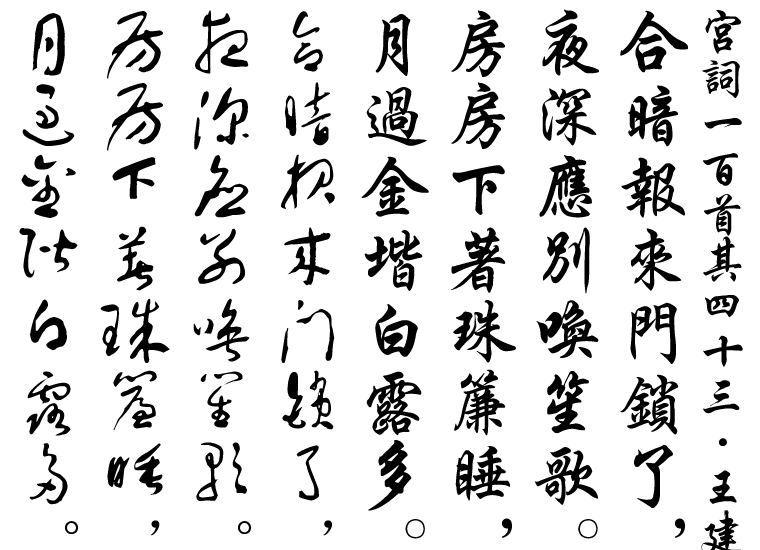 宮詞一百首其四十三·王建
合暗報來門鎖了，
夜深應別喚笙歌。
房房下著珠簾睡，
月過金堦白露多。
合暗报来门锁了，
夜深应别唤笙歌。
房房下着珠簾睡，
月过金阶白露多。